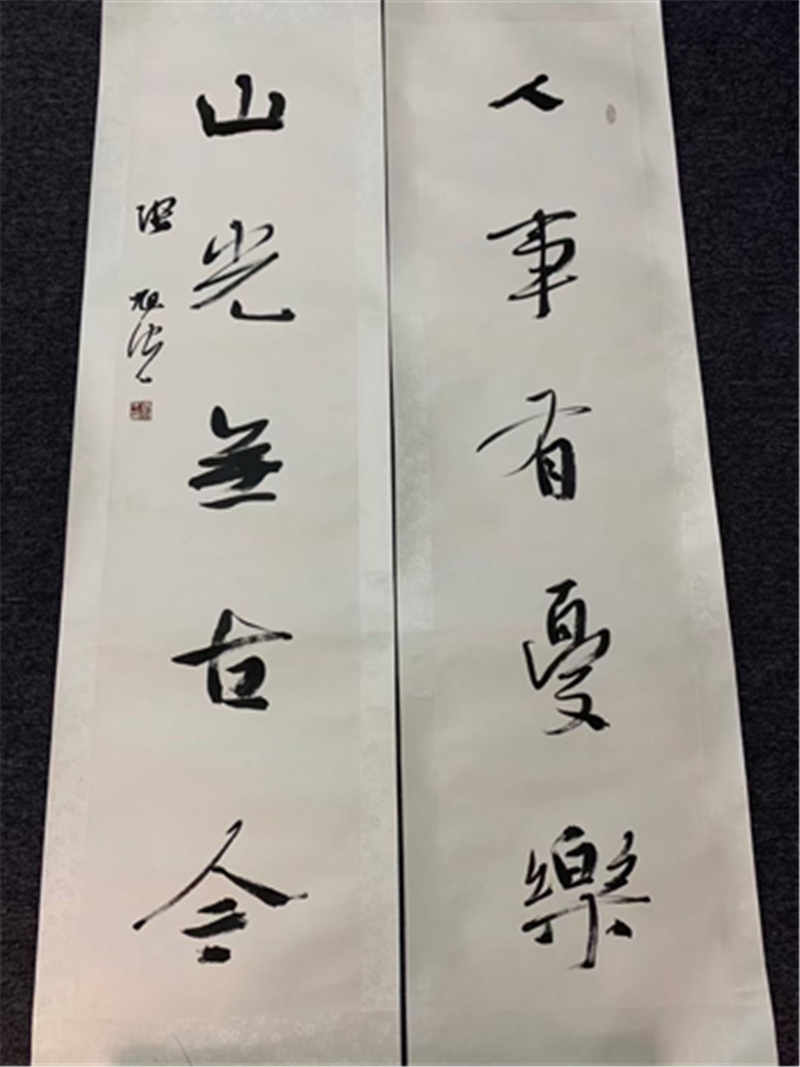 人事有憂樂
山光無古今